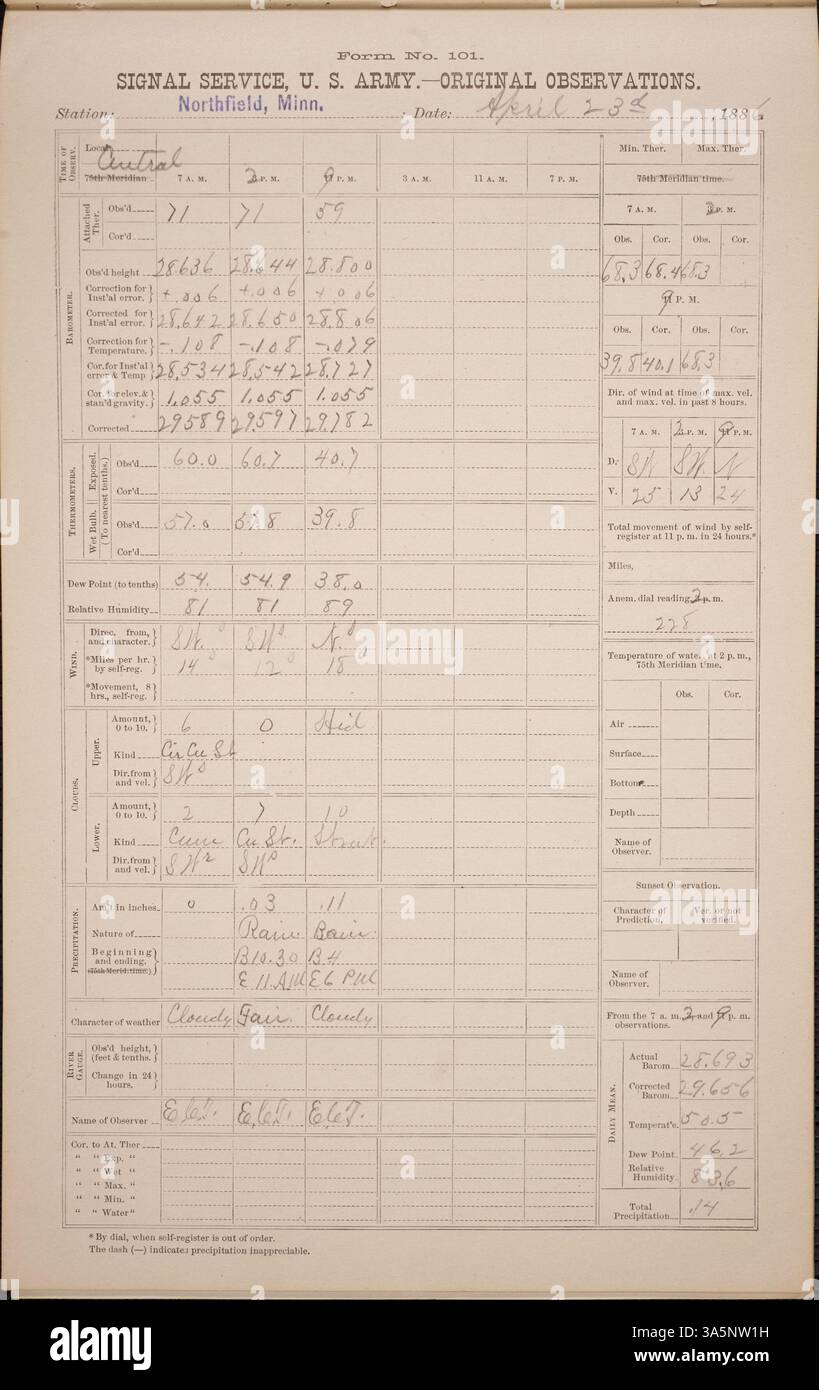 Form No. 101.
SIGNAL SERVICE, U. S. ARMY.—ORIGINAL OBSERVATIONS.
Station: Northfield, Minn. ; Date: April 23d, 1886
TIME OF OBSERV. Local Central
75th Meridian 7 A. M. 2 P. M. 9 P. M. 3 A. M. 11 A. M. 7 P. M.
Attached Ther. Obs'd 71 71 59
Cor'd
BAROMETER.
Obs'd height 28.636 28.644 28.800
Correction for Inst'al error. +.006 +.006 +.006
Corrected for Inst'al error. 28.642 28.650 28.806
Correction for Temperature. -.108 -.108 -.079
Cor. for Inst'al error & Temp 28.534 28.542 28.727
Cor. for elev. & stan'd gravity. 1.055 1.055 1.055
Corrected 29589 29.597 29.782
THERMOMETERS. (To nearest tenths.)
Exposed. Obs'd 60.0 60.7 40.7
Cor'd
Wet Bulb. Obs'd 57.0 57.8 39.8
Cor'd
Dew Point (to tenths) 54. 54.9 38.0
Relative Humidity 81 81 89
WIND.
Direc. from, and character. SW. SW. N.
*Miles per hr. by self-reg. 14 12 18
*Movement, 8 hrs., self-reg.
CLOUDS.
Upper. Amount, 0 to 10. 6 0 Hid
Kind Cir Cu St
Dir. from and vel. SW
Lower. Amount, 0 to 10. 2 7 10
Kind Cum Cu St. Strat.
Dir. from and vel. SW SW
PRECIPITATION.
Am't in inches 0 .03 .11
Nature of Rain Rain
Beginning and ending. (75th Merid. time.) B 10.30 B 4
E 11. AM E 6 PM
Character of weather Cloudy Fair. Cloudy
RIVER GAUGE.
Obs'd height, (feet & tenths.)
Change in 24 hours.
Name of Observer
Cor. to At. Ther
" " Exp. "
" " Wet "
" " Max. "
" " Min. "
" " Water "
* By dial, when self-register is out of order.
The dash (—) indicates precipitation inappreciable.
Min. Ther. Max. Ther.
75th Meridian time.
7 A. M. P. M.
Obs. Cor. Obs. Cor.
68.3 68.4 68.3
9 P. M.
Obs. Cor. Obs. Cor.
39.8 40.1 68.3
Dir. of wind at time of max. vel. and max. vel. in past 8 hours.
7 A. M. 2 P. M. 9 P. M.
D. SW SW. N
V. 25 13 24
Total movement of wind by self-register at 11 p. m. in 24 hours.*
Miles,
Anem. dial reading 2 p. m.
228
Temperature of water at 2 p. m., 75th Meridian time.
Obs. Cor.
Air
Surface
Bottom
Depth
Name of Observer.
Sunset Observation.
Character of Prediction. Ver. or not verified.
Name of Observer.
From the 7 a. m. 2, and 9 p. m. observations.
DAILY MEAN.
Actual Barom. 28.693
Corrected Barom. 29.656
Temperat'e. 50.5
Dew Point 46.2
Relative Humidity 83.6
Total Precipitation .14
alamy
alamy
alamy
alamy
Image ID: 2A5NW1H
www.alamy.com